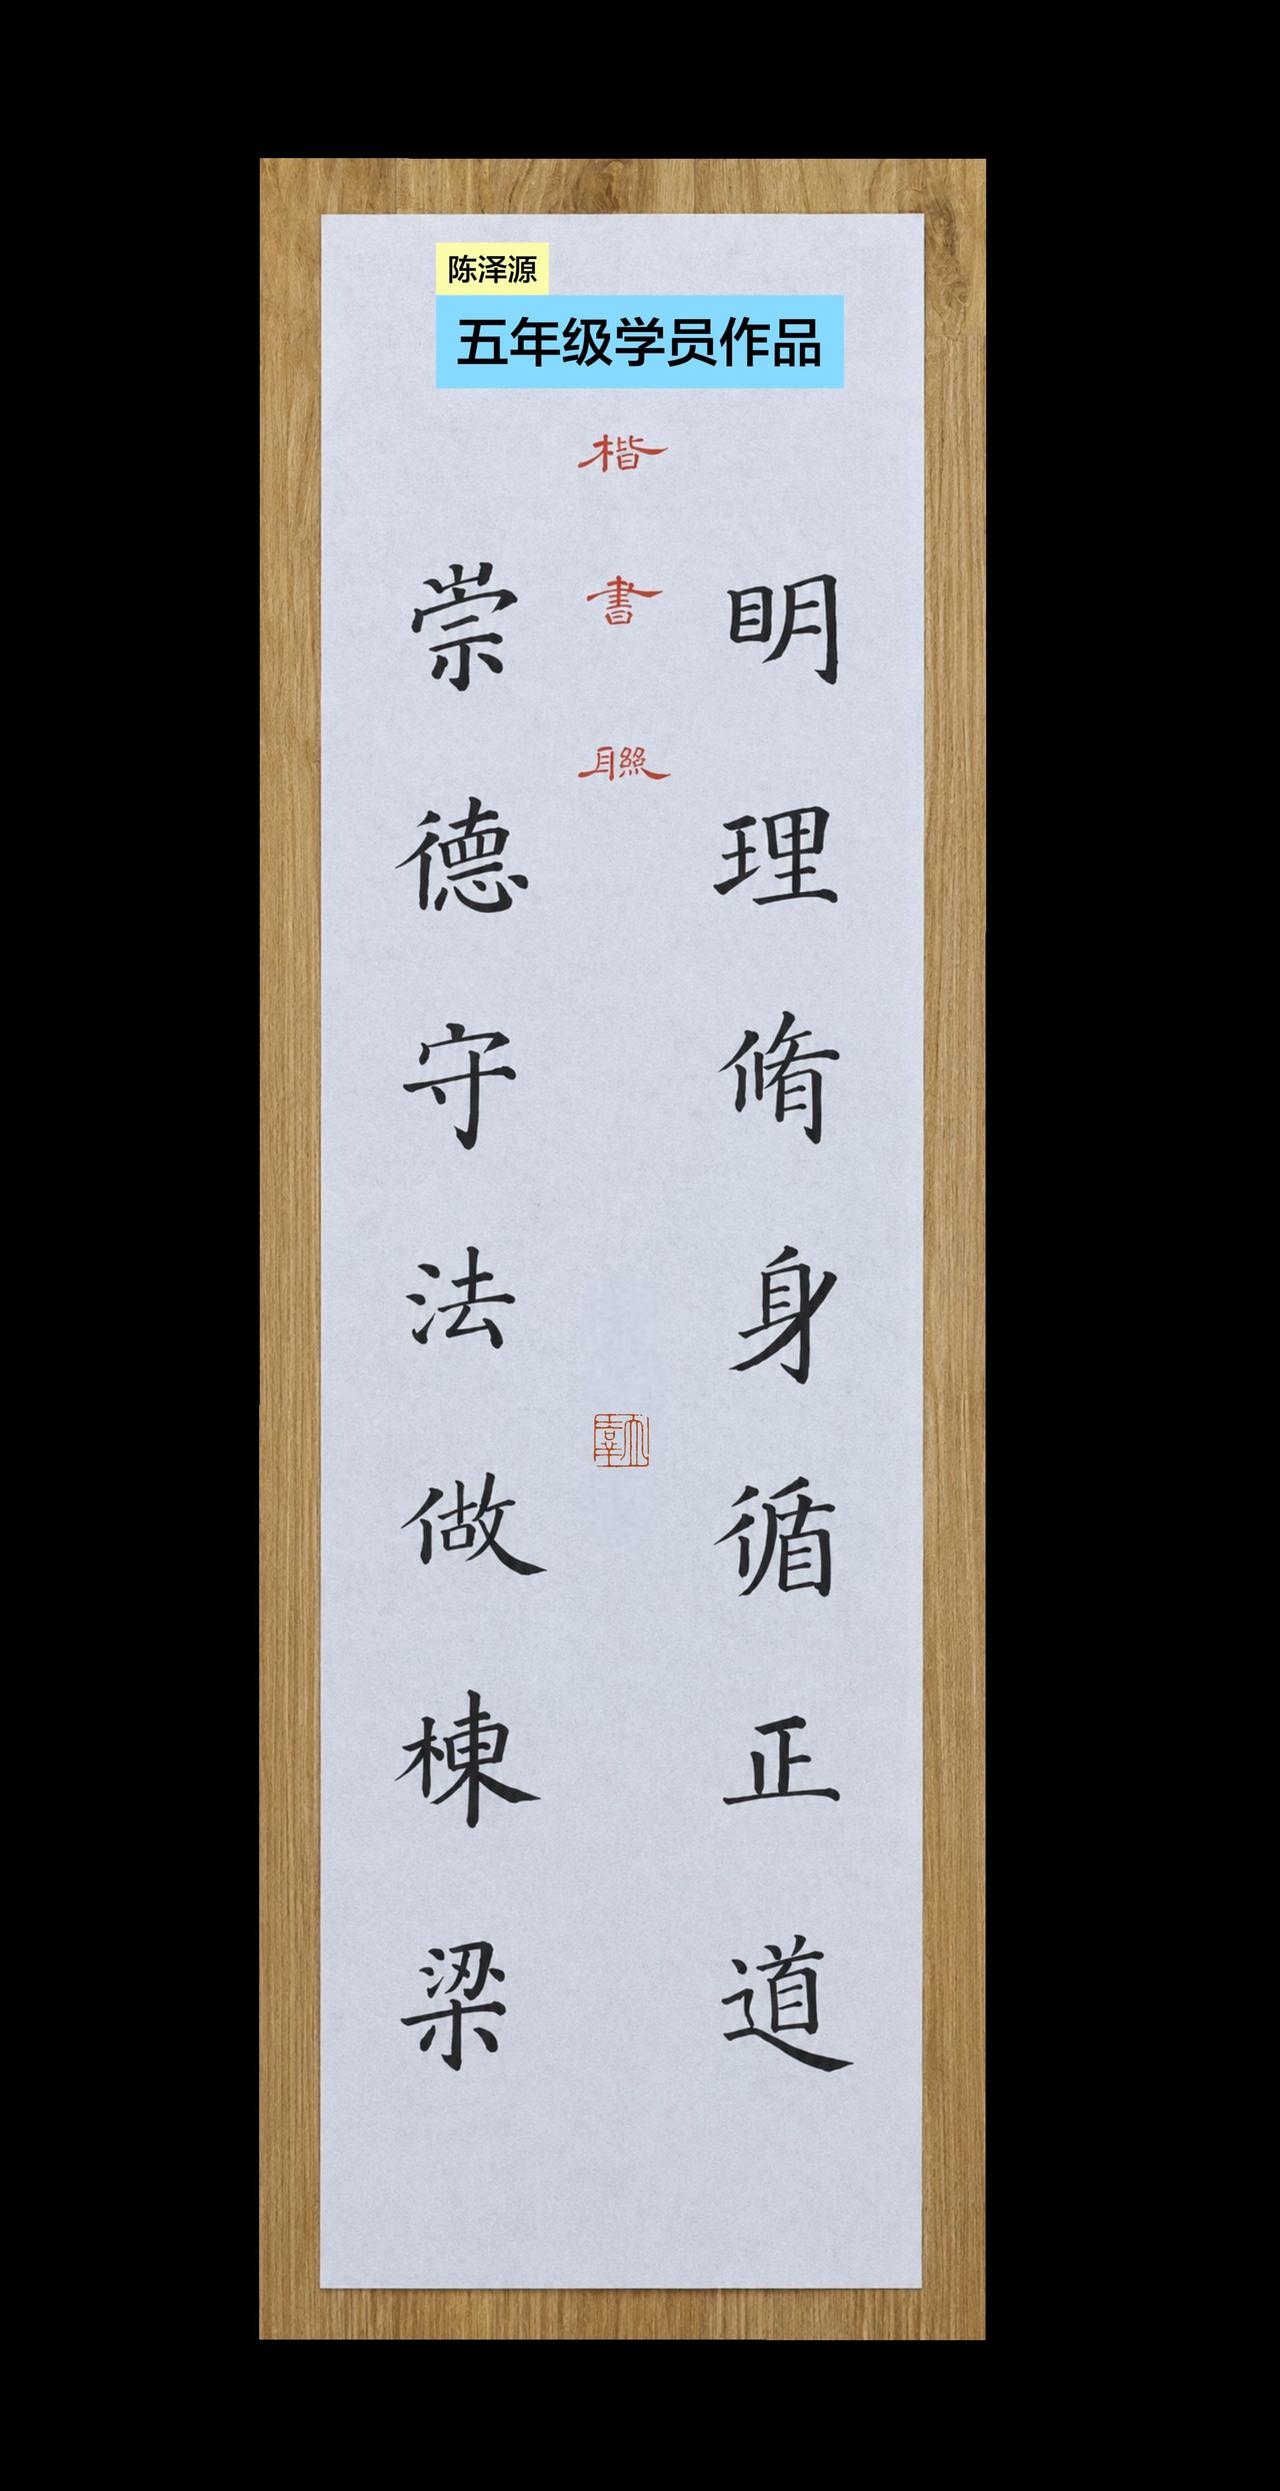 陈泽源
五年级学员作品
楷書聯
明理脩身循正道
崇德守法做棟梁